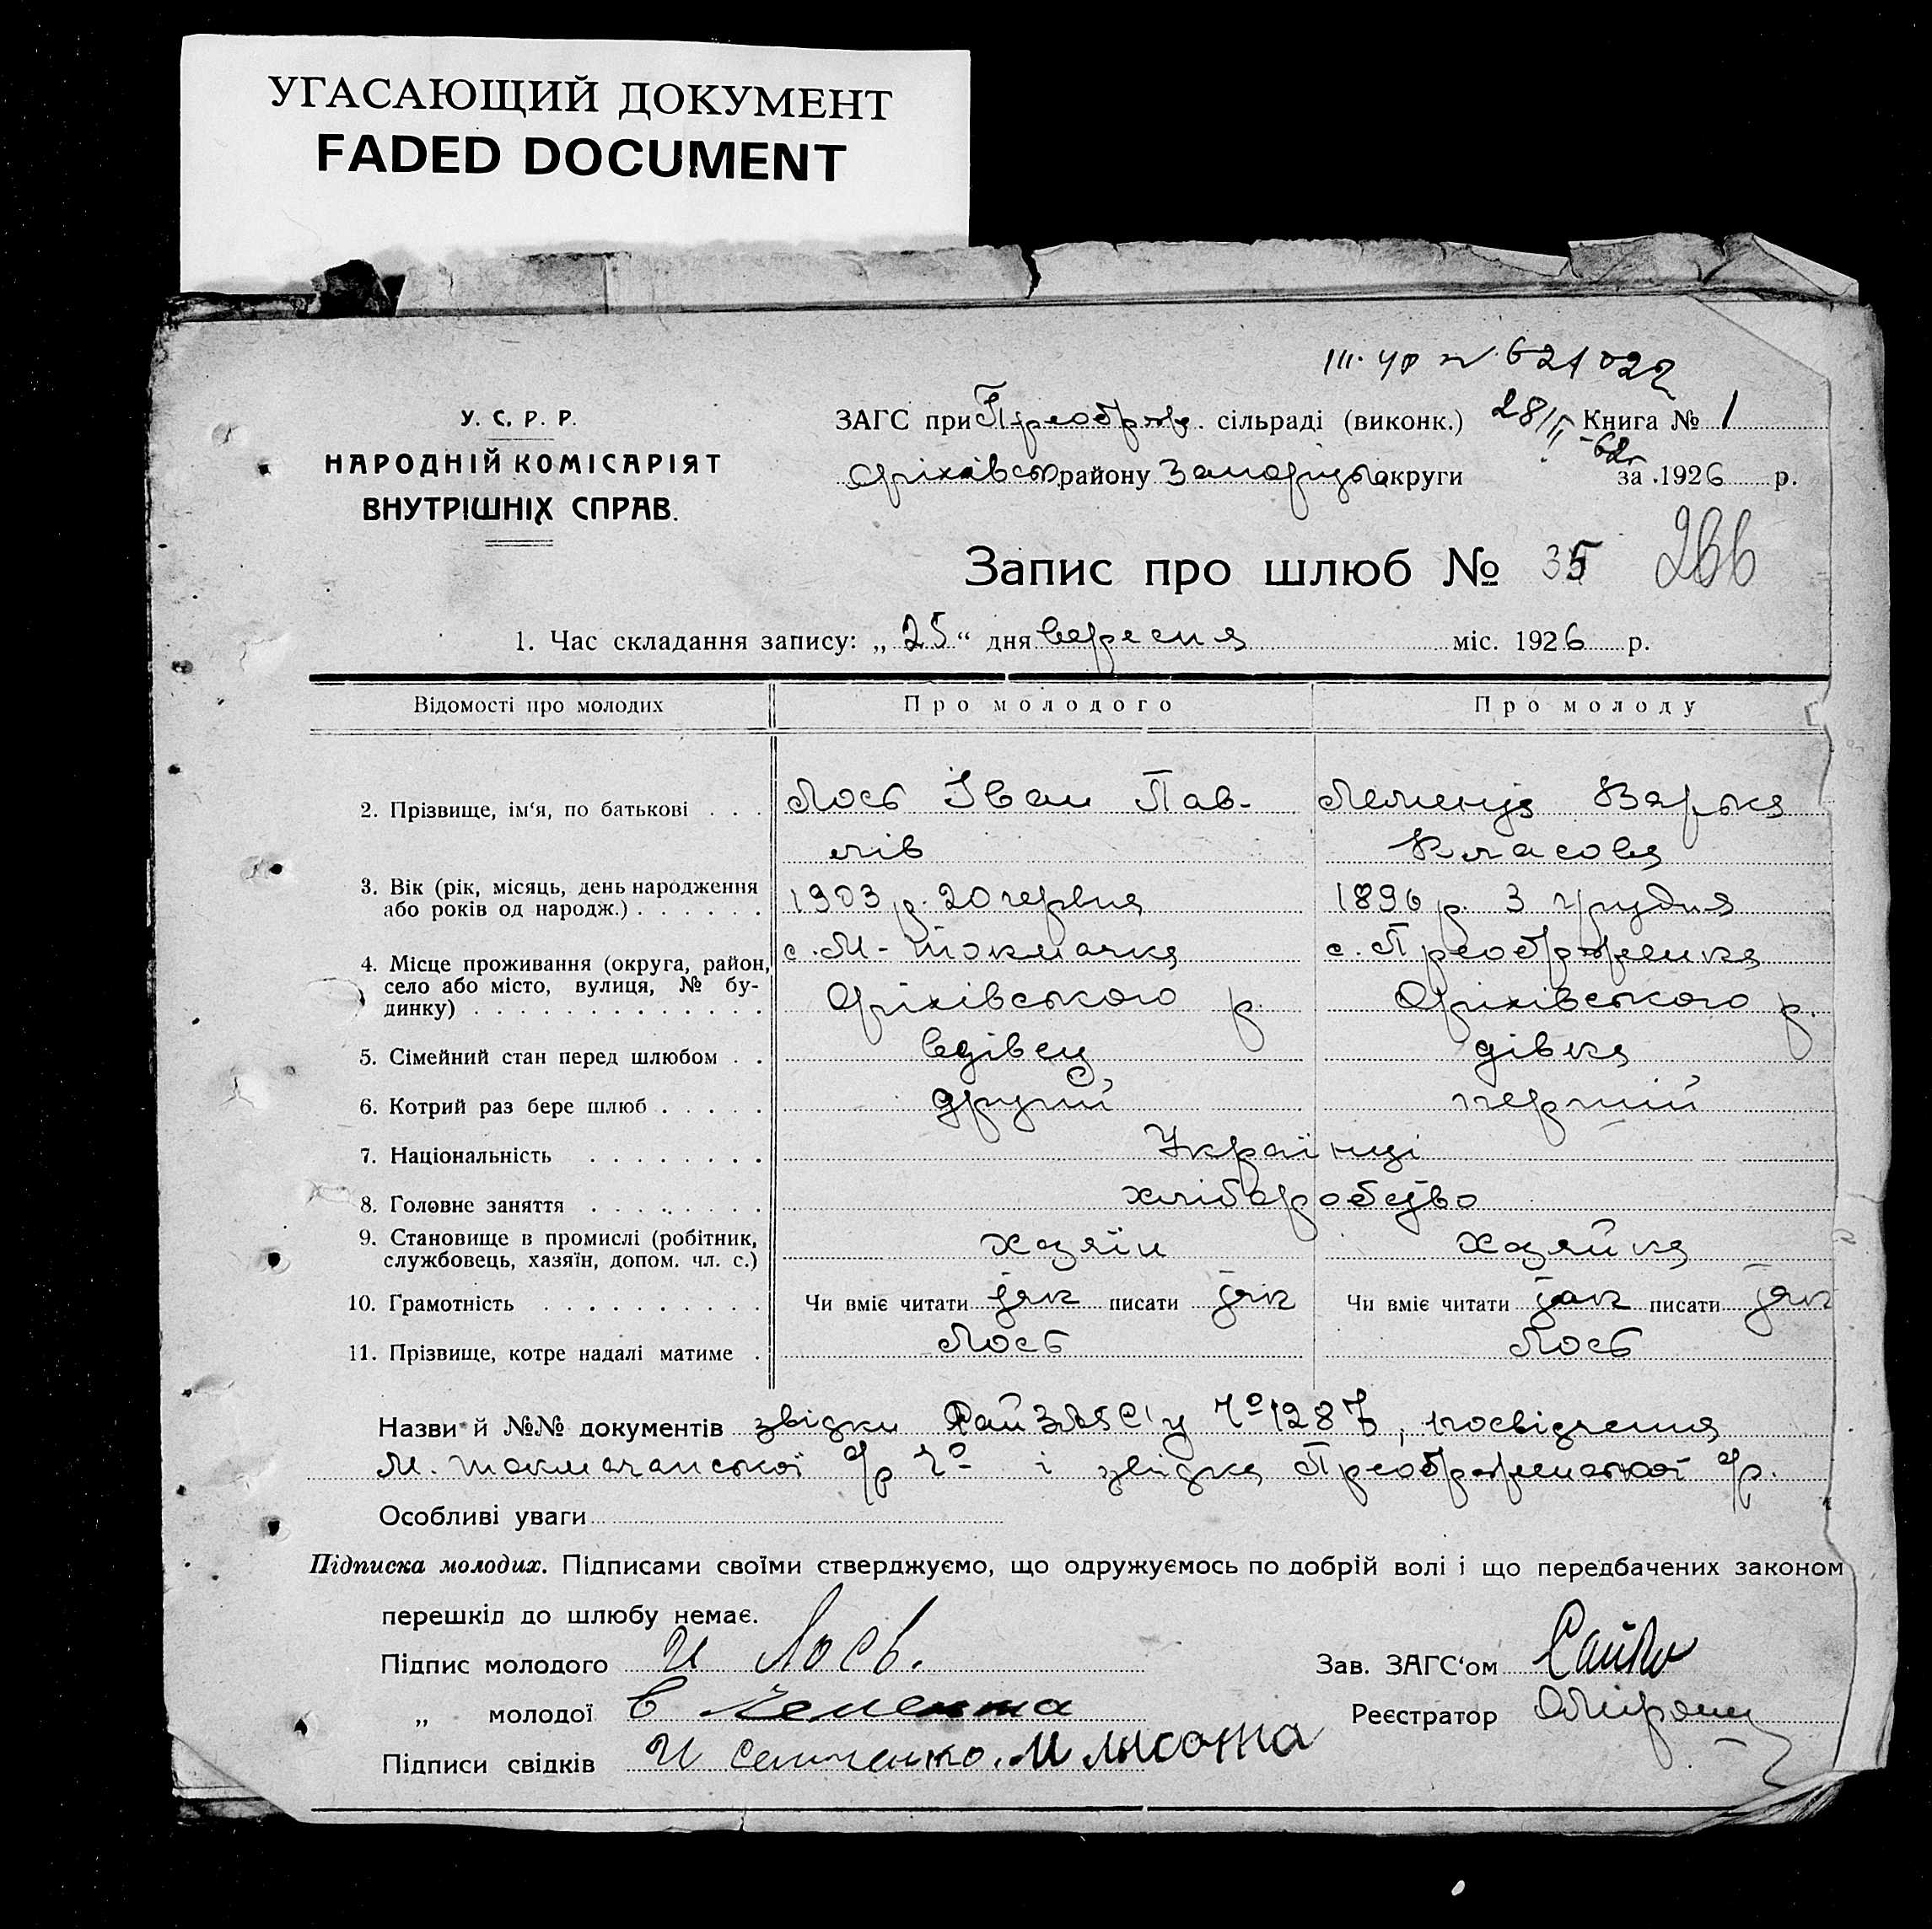 УГАСАЮЩИЙ ДОКУМЕНТ
FADED DOCUMENT
III. УР N 621022
28/II-62
У. С. Р. Р.
НАРОДНІЙ КОМІСАРІЯТ
ВНУТРІШНІХ СПРАВ.
ЗАГС при Преображ. сільраді (виконк.) Книга № 1
Оріхівськ. району Запоріцької округи за 1926 р.
Запис про шлюб № 35 266
1. Час складання запису: „25“ дня вересня міс. 1926 р.
Відомості про молодих Про молодого Про молоду
2. Прізвище, ім'я, по батькові . . . Лось Іван Пав- Варька
лів Власова
3. Вік (рік, місяць, день народження
або років од народж.) . . . . . . 1903 р. 20 червня 1896 р. 3 грудня
4. Місце проживання (округа, район, с. М-Токмачка с. Преображенка
село або місто, вулиця, № бу-
динку) . . . . . . . . . . . . . Оріхівського р. Оріхівського р.
5. Сімейний стан перед шлюбом . . вдівец дівка
6. Котрий раз бере шлюб . . . . . другий перший
7. Національність . . . . . . . . Українці
8. Головне заняття . . . . . . . . хліборобство
9. Становище в промислі (робітник,
службовець, хазяїн, допом. чл. с.) хазяїн хазяйка
10. Грамотність . . . . . . . . . . Чи вміє читати так писати так Чи вміє читати так писати так
11. Прізвище, котре надалі матиме . Лось Лось
Назви й №№ документів звідки РайЗАГС'у № 1287, посвідчення
М. Токмачанської с/р № і звідка Преображенської с/р.
Особливі уваги
Підписка молодих. Підписами своїми стверджуємо, що одружуємось по добрій волі і що передбачених законом
перешкід до шлюбу немає.
Підпис молодого И Лось. Зав. ЗАГС'ом
„ молодої В Реєстратор
Підписи свідків И М Лисота